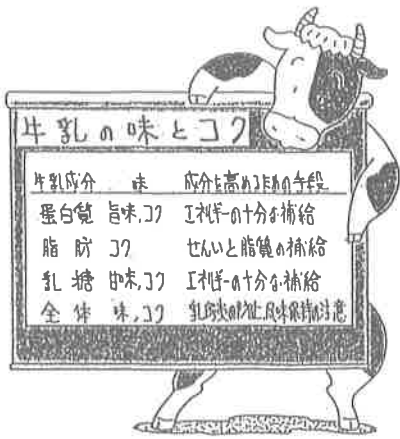 牛乳の味とコク
牛乳成分 味 成分を高めるための手段
蛋白質 旨味,コク エネルギーの十分な補給
脂肪 コク せんいと脂質の補給
乳糖 甘味,コク エネルギーの十分な補給
全体 味,コク 乳房炎の防止,風味保持の注意